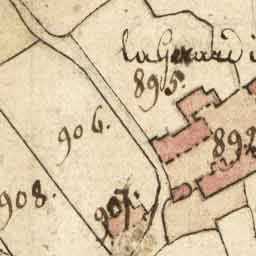 la Gerard
895.
906.
892
908.
907.